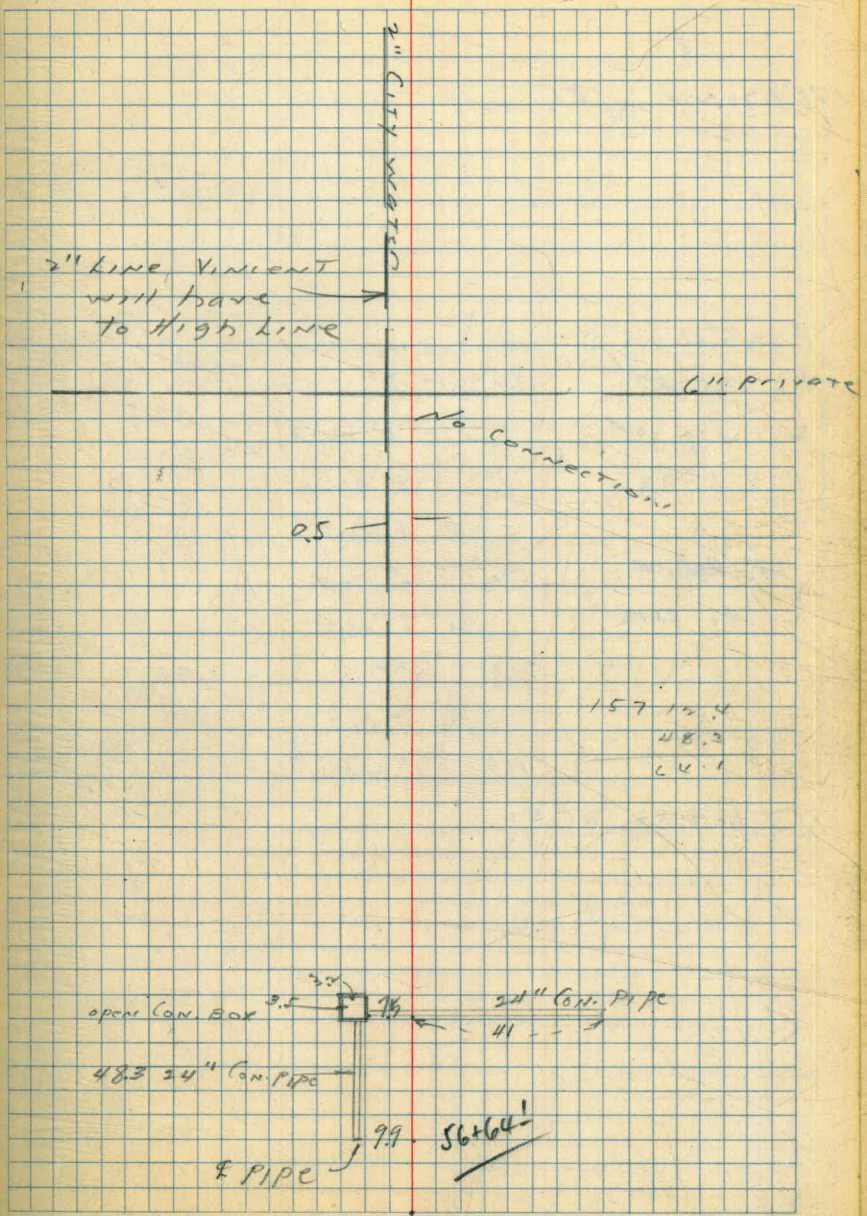 2" CITY WATER
2" LINE VINCENT
will have
to High LINE
6" private
No Connection
0.5
157 12.4
48.3
64.1
open Con. Box 3.5
7.5
24" Con. Pipe
41
48.3 24" Con. Pipe
9.9
56+64!
℄ PIPE